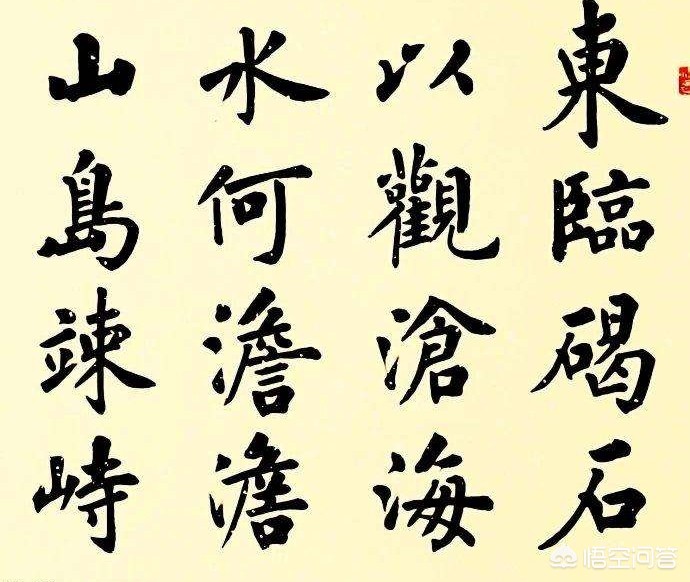 東臨碣石
以觀滄海
水何澹澹
山島竦峙
悟空问答